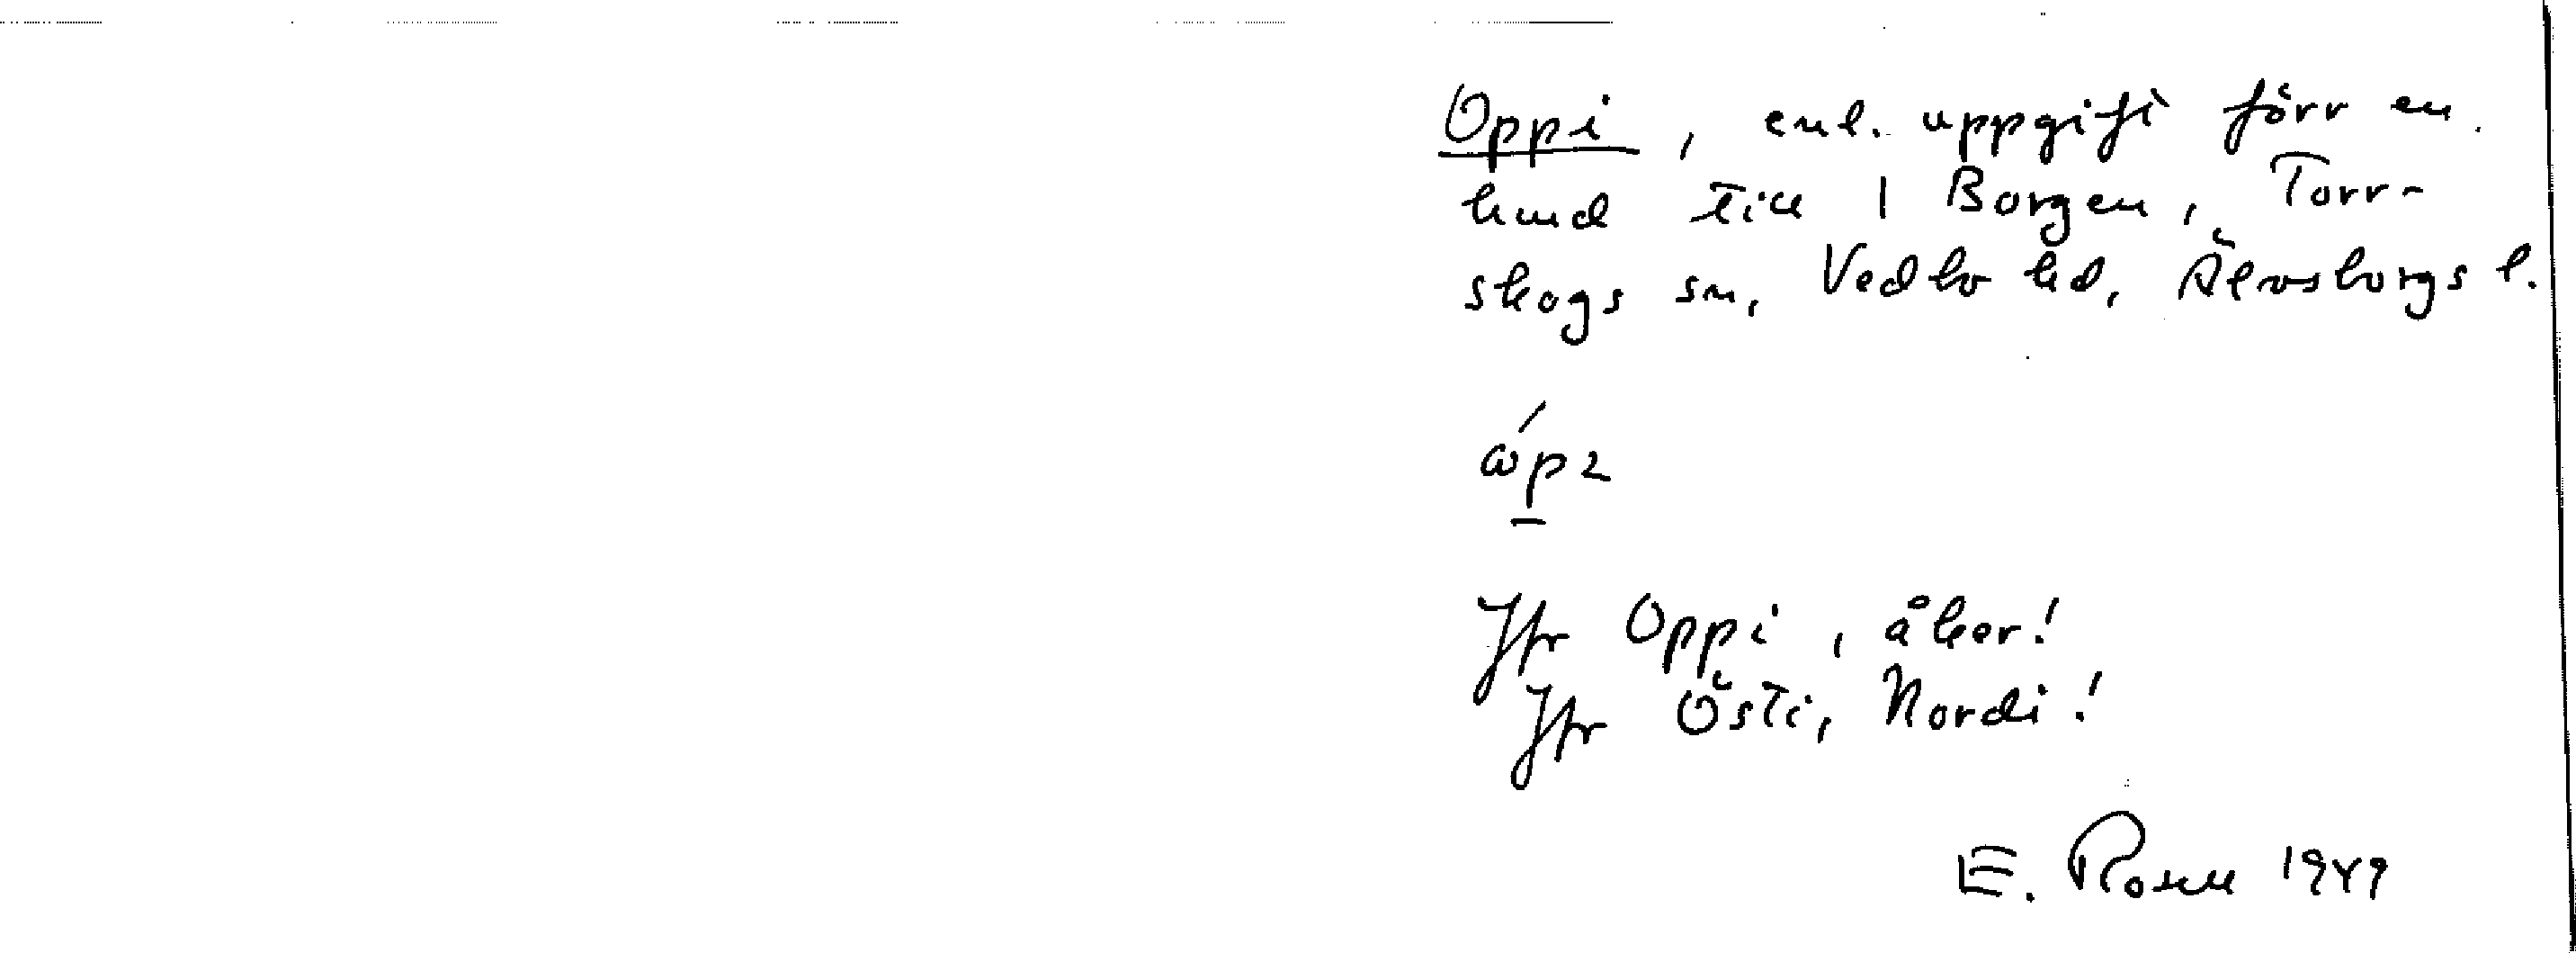 Oppi, enl. uppgift förr en
hmd till 1 Borgen, Torr-
skogs sn, Vedbo hd, Älvsborgs l.
Jfr Oppi, åker!
Jfr Östi, Nordi!
E. Rosell 1949